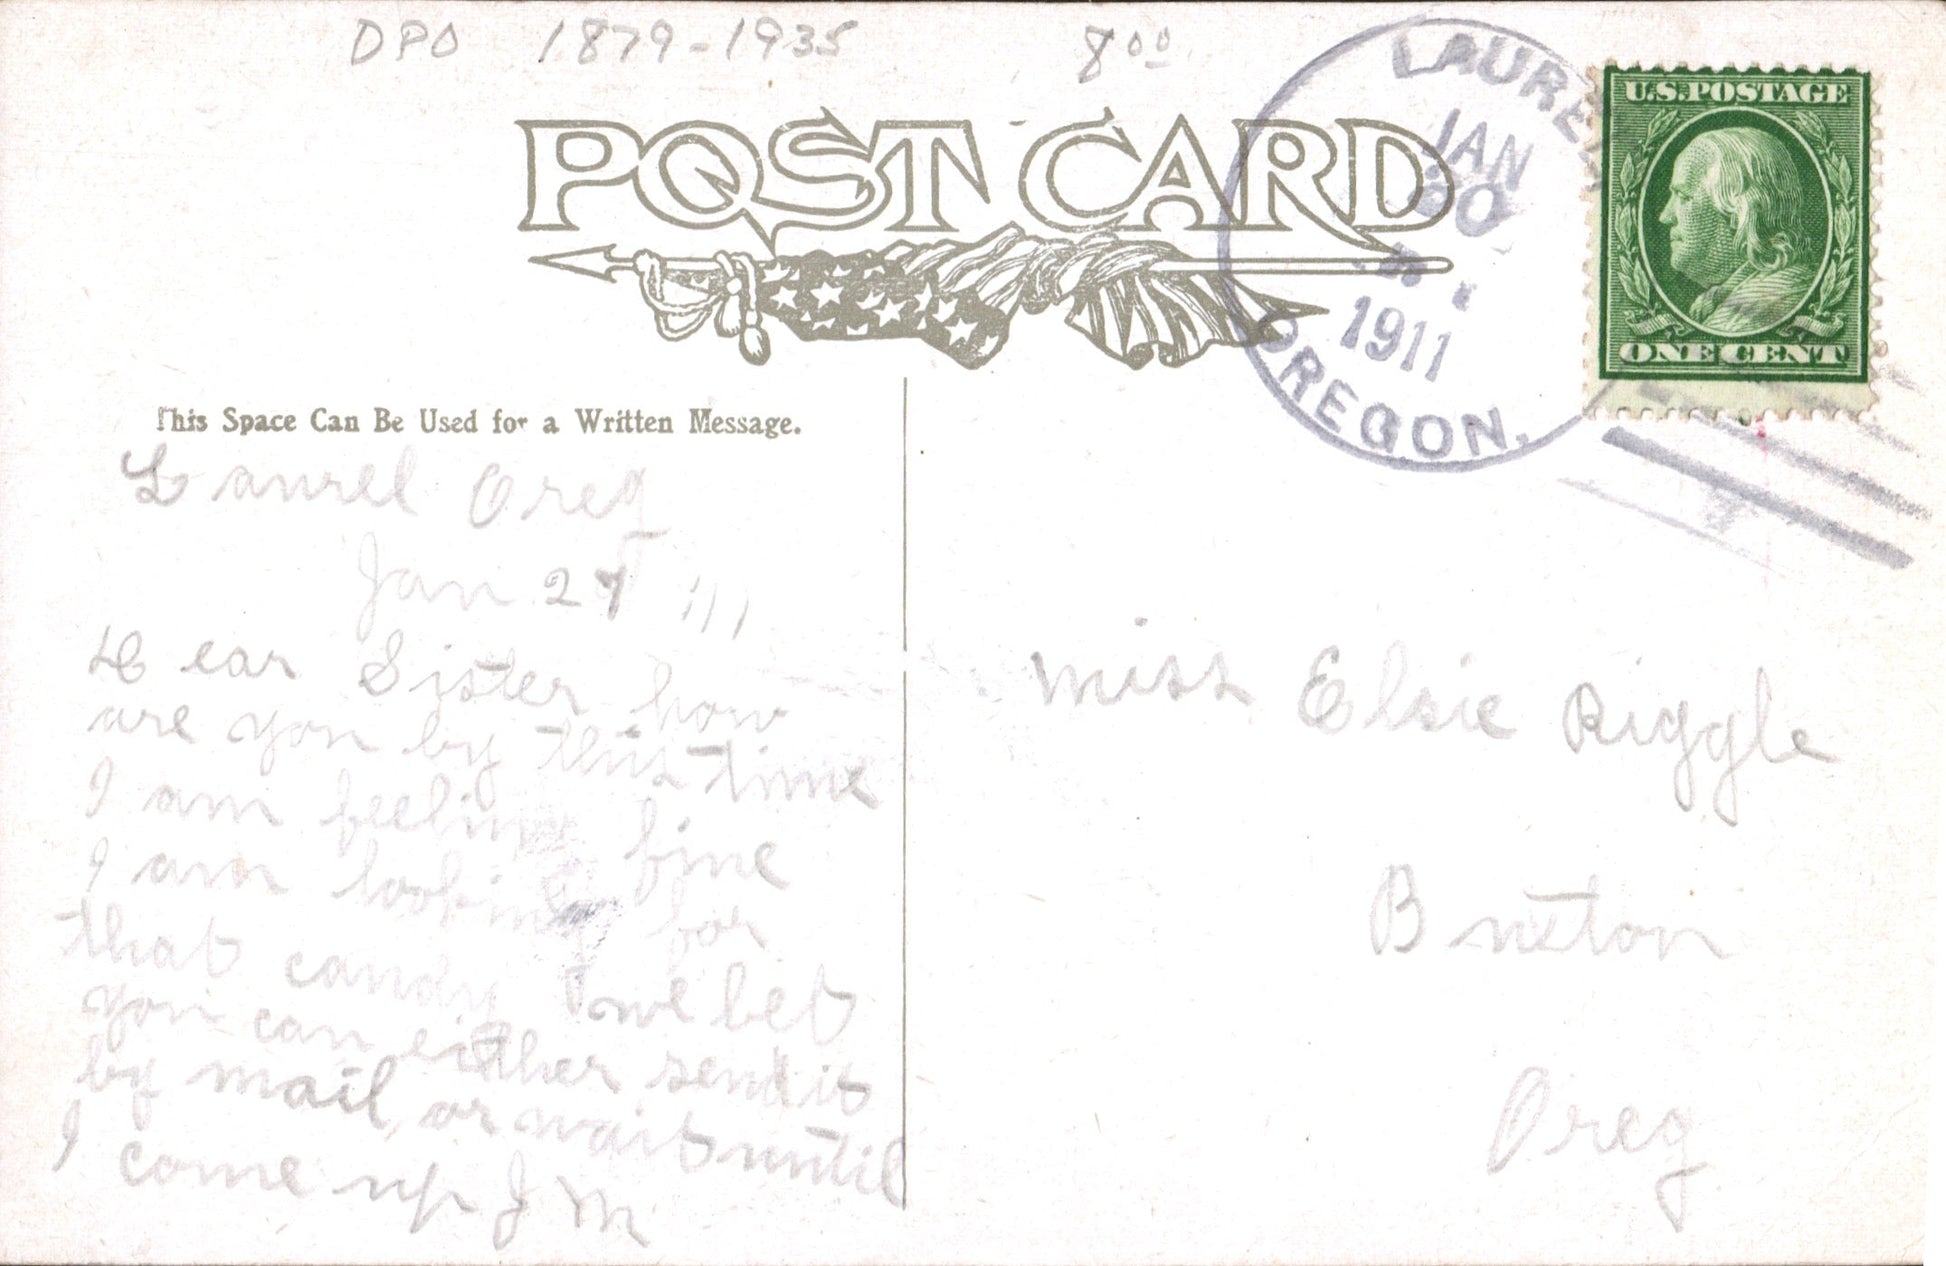 DPO 1879-1935 800
POST CARD
LAUREL
JAN
30
1911
OREGON.
U.S.POSTAGE
ONE CENT
This Space Can Be Used for a Written Message.
Laurel Oreg
Jan 27 '11
Dear Sister how
are you by this time
I am feeling fine
I am looking for
that candy we bet
you can either send it
by mail or wait until
I come up J M
Miss Elsie Riggle
Buxton
Oreg